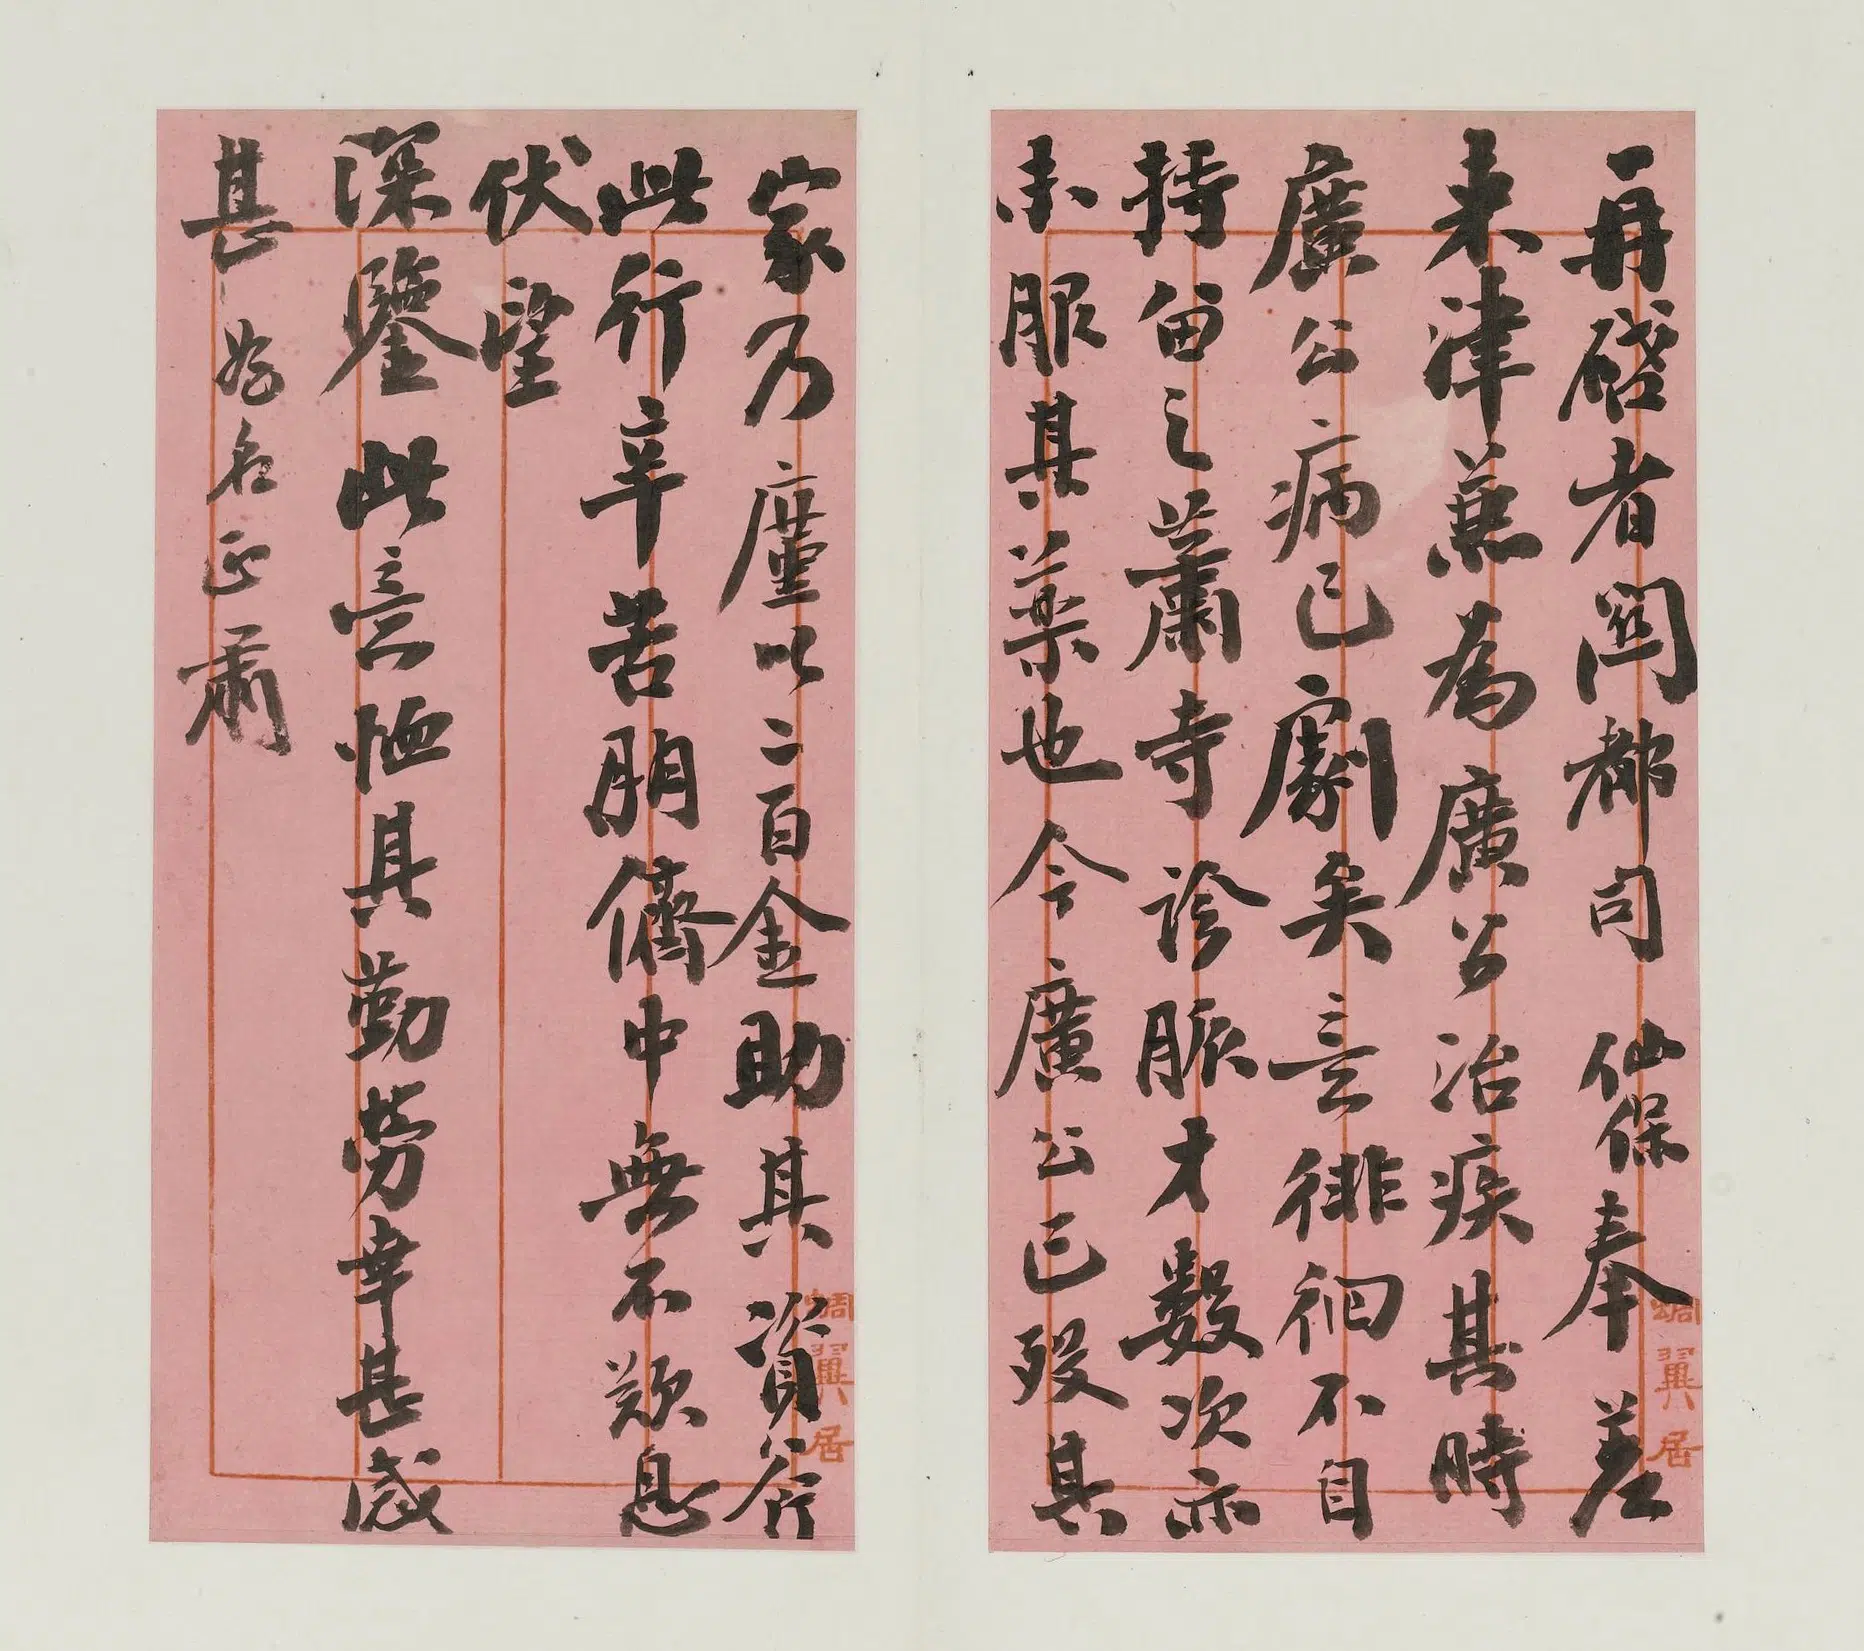 再啓者都司仙保奉差
來津兼為廣公治疾其時
廣公病已劇矣意徘徊不自
持留之蕭寺診脈才數次亦
未服其藥也今廣公已歿其
蜩翼居
家乃廑以二百金助其資斧
此行辛苦朋儕中無不歎息
伏望
深鑒此意恤其勤勞幸甚感
甚 名正肅
蜩翼居